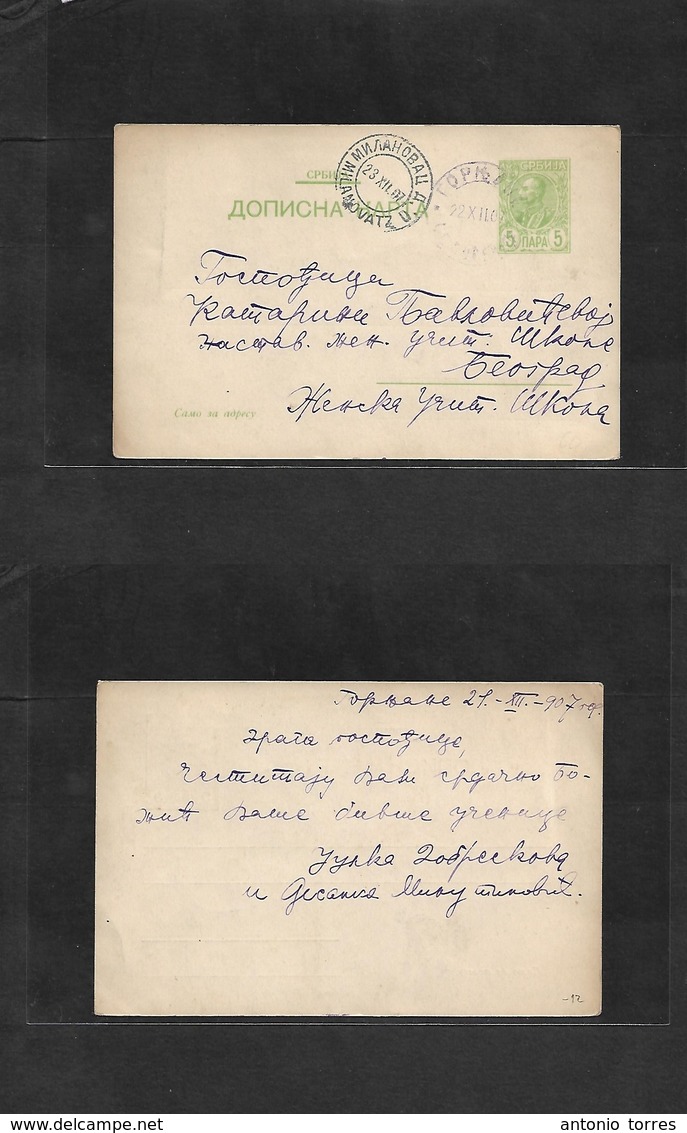 СРБИЈА
СРБИ
ДОПИСНА КАРТА
МИЛАНОВАЦ Д.П.
MILANOVATZ
23 XII.07
ГОРЊ
22 XII.0
5 ПАРА 5
Госпођици
Катарини Павловићевој
настав. жен. учит. Школе
Београд
Женска Учит. Школа
Само за адресу
Горњане 21.-XII.-907 год.
Драга госпођице,
Честитају Вам срдачно Бо-
жић Ваше бивше ученице
Јулка
и Десанка Милутиновић.
-12
antonio torres